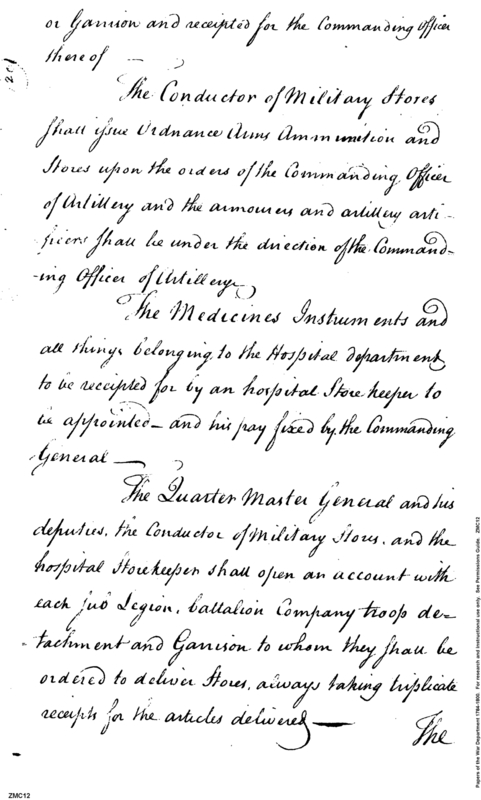 or Garrison and receipted for the Commanding Officer
thereof —
The Conductor of Military Stores
shall issue Ordnance Arms Ammunition and
Stores upon the orders of the Commanding Officer
of Artillery and the armourers and artillery arti-
ficers shall be under the direction of the Command-
-ing Officer of Artillery
The Medicines Instruments and
all things belonging to the Hospital department
to be receipted for by an hospital Store keeper to
be appointed — and his pay fixed by the Commanding
General —
The Quarter Master General and his
deputies, the Conductor of Military Stores, and the
hospital Storekeeper shall open an account with
each sub Legion, battalion Company troop de-
tachment and Garrison to whom they shall be
ordered to deliver Stores, always taking triplicate
receipts for the articles delivered —
The
ZMC12
Papers of the War Department 1784-1800. For research and instructional use only. See Permissions Guide. ZMC12